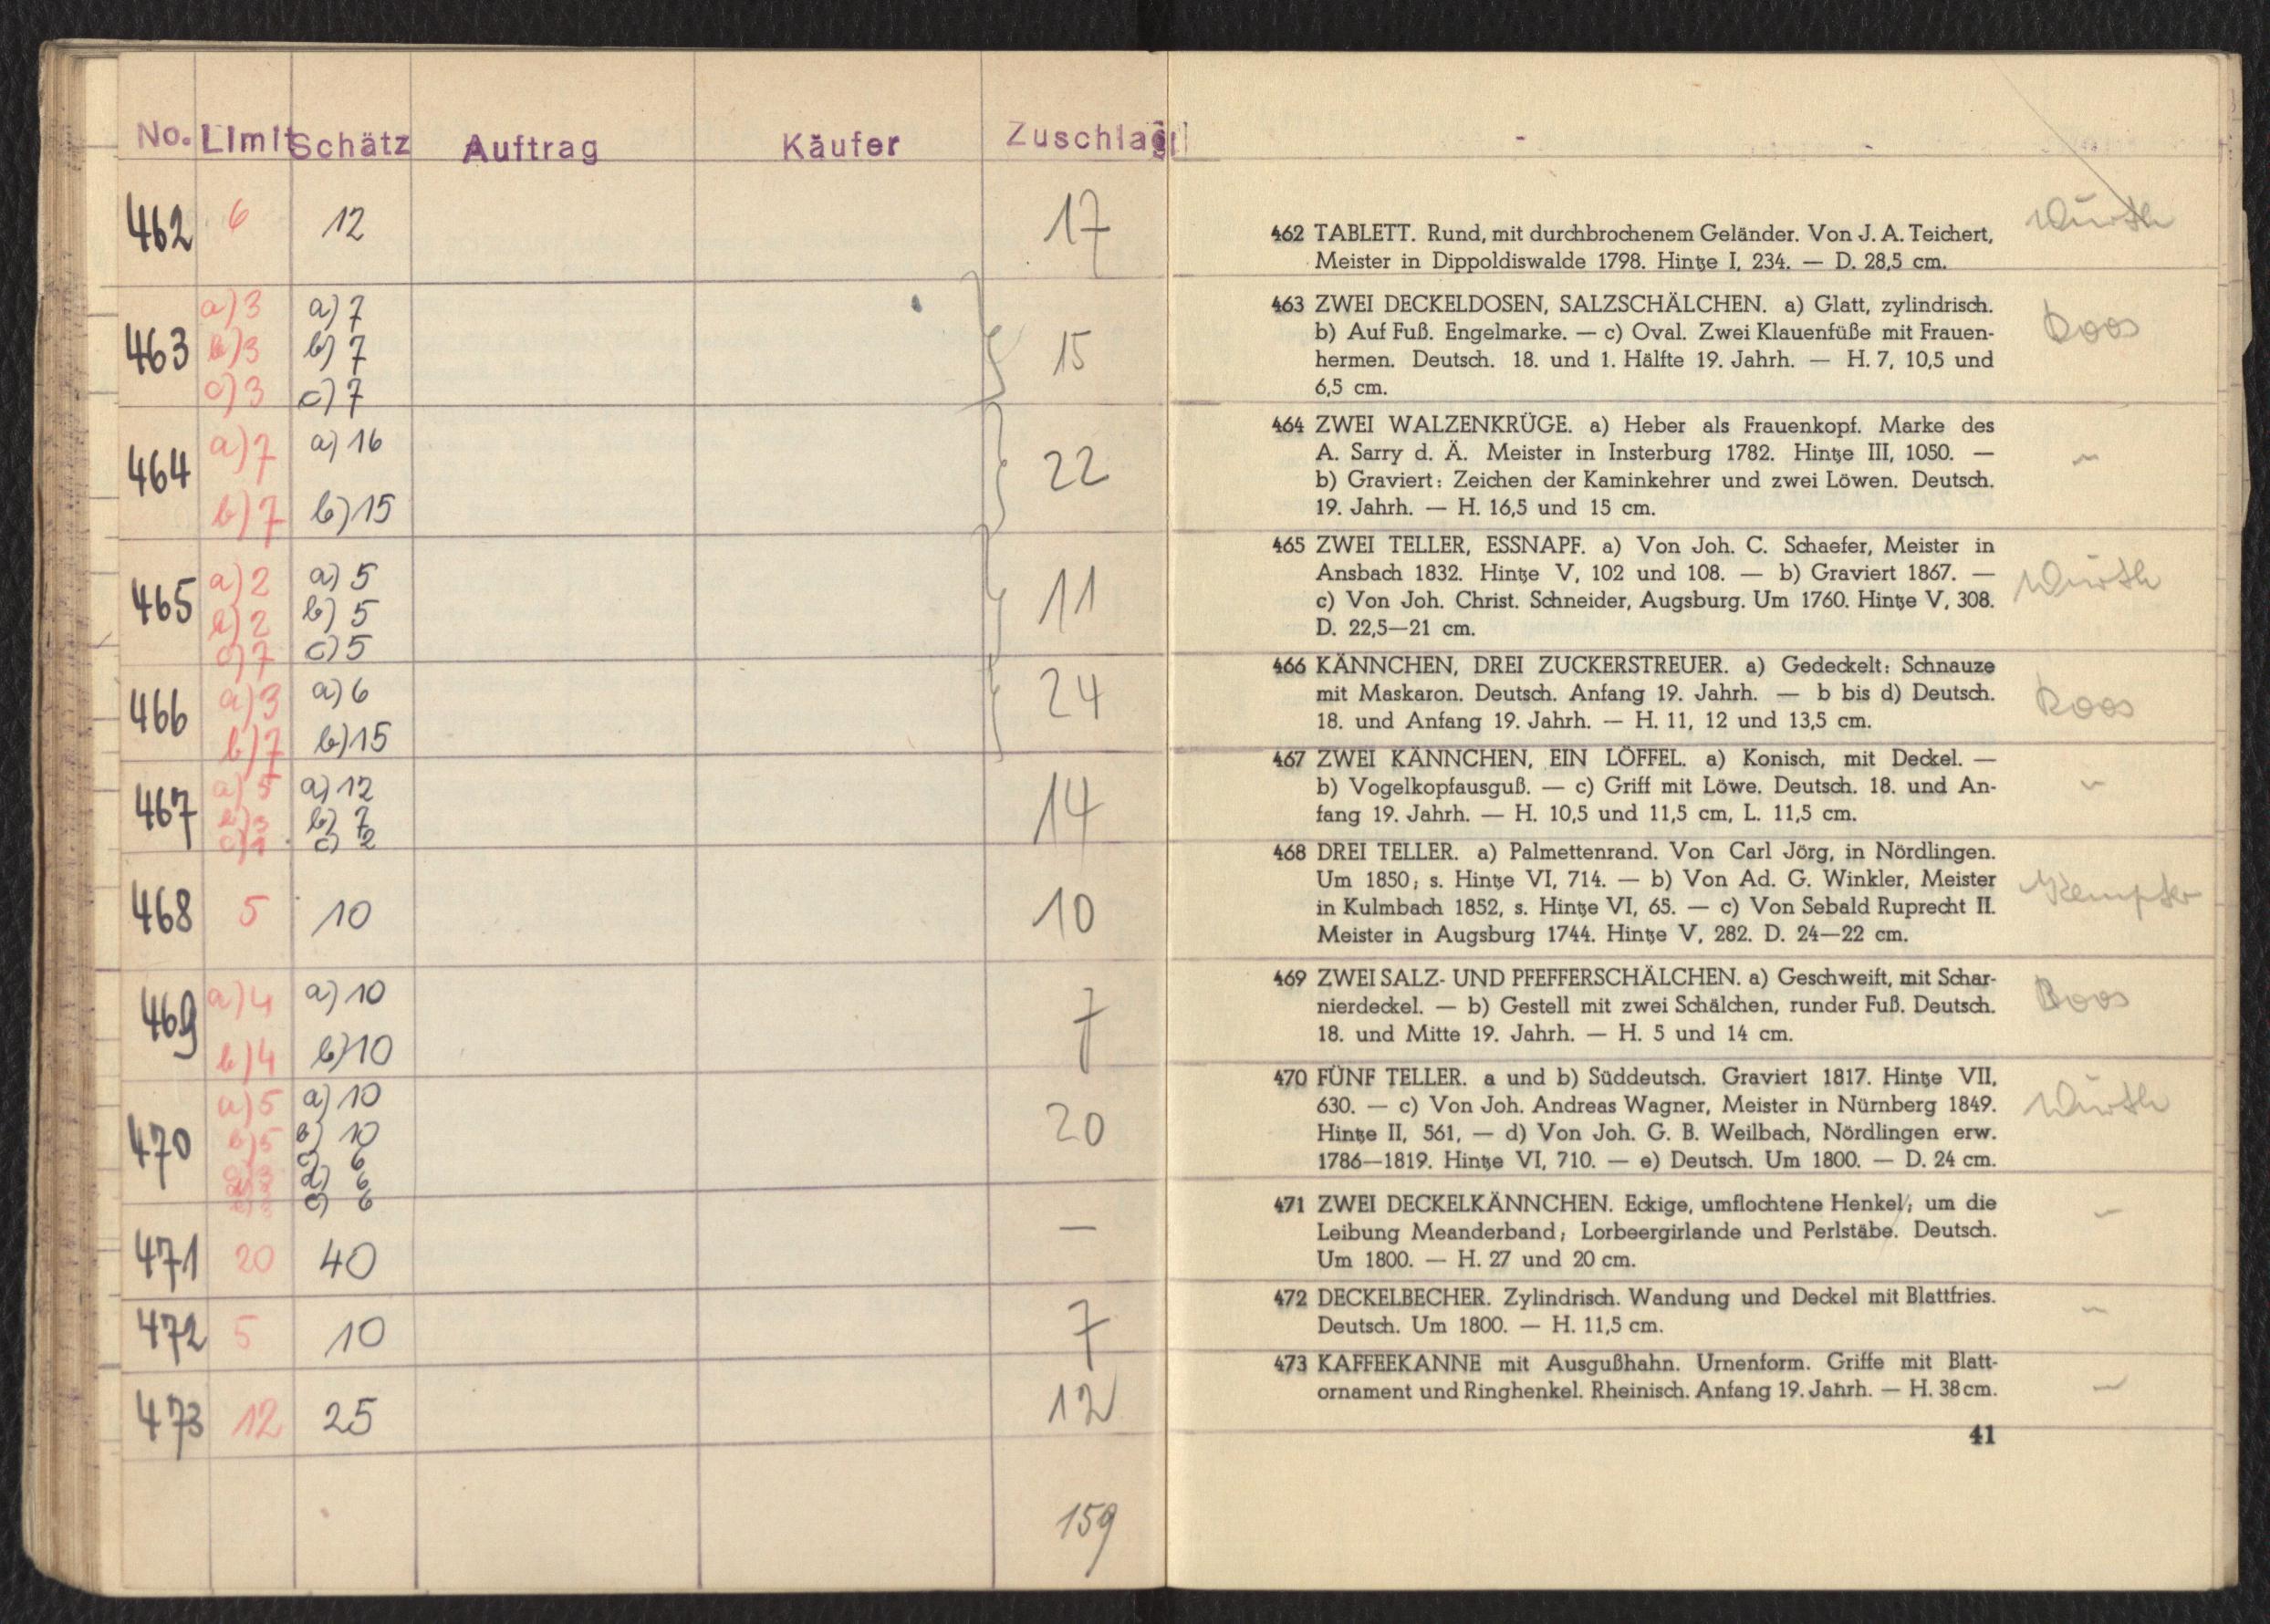 No. Limit Schätz Auftrag Käufer Zuschlag
462 6 12 17
463 a) 3 a) 7
b) 3 b) 7 15
c) 3 c) 7
464 a) 7 a) 16 22
b) 7 b) 15
465 a) 2 a) 5 11
b) 2 b) 5
c) 7 c) 5
466 a) 3 a) 6 24
b) 7 b) 15
467 a) 5 a) 12 14
b) 3 b) 7
c) 1 c) 2
468 5 10 10
469 a) 4 a) 10 7
b) 4 b) 10
470 a) 5 a) 10 20
b) 5 b) 10
c) 6
d) 3 d) 6
e) 6
471 20 40 —
472 5 10 7
473 12 25 12
159
462 TABLETT. Rund, mit durchbrochenem Geländer. Von J. A. Teichert, Würth
Meister in Dippoldiswalde 1798. Hintze I, 234. — D. 28,5 cm.
463 ZWEI DECKELDOSEN, SALZSCHÄLCHEN. a) Glatt, zylindrisch. Roos
b) Auf Fuß. Engelmarke. — c) Oval. Zwei Klauenfüße mit Frauen-
hermen. Deutsch. 18. und 1. Hälfte 19. Jahrh. — H. 7, 10,5 und
6,5 cm.
464 ZWEI WALZENKRÜGE. a) Heber als Frauenkopf. Marke des
A. Sarry d. Ä. Meister in Insterburg 1782. Hintze III, 1050. — –
b) Graviert: Zeichen der Kaminkehrer und zwei Löwen. Deutsch.
19. Jahrh. — H. 16,5 und 15 cm.
465 ZWEI TELLER, ESSNAPF. a) Von Joh. C. Schaefer, Meister in
Ansbach 1832. Hintze V, 102 und 108. — b) Graviert 1867. — Würth
c) Von Joh. Christ. Schneider, Augsburg. Um 1760. Hintze V, 308.
D. 22,5—21 cm.
466 KÄNNCHEN, DREI ZUCKERSTREUER. a) Gedeckelt: Schnauze
mit Maskaron. Deutsch. Anfang 19. Jahrh. — b bis d) Deutsch. Roos
18. und Anfang 19. Jahrh. — H. 11, 12 und 13,5 cm.
467 ZWEI KÄNNCHEN, EIN LÖFFEL. a) Konisch, mit Deckel. —
b) Vogelkopfausguß. — c) Griff mit Löwe. Deutsch. 18. und An- –
fang 19. Jahrh. — H. 10,5 und 11,5 cm, L. 11,5 cm.
468 DREI TELLER. a) Palmettenrand. Von Carl Jörg, in Nördlingen.
Um 1850; s. Hintze VI, 714. — b) Von Ad. G. Winkler, Meister Kempter
in Kulmbach 1852, s. Hintze VI, 65. — c) Von Sebald Ruprecht II.
Meister in Augsburg 1744. Hintze V, 282. D. 24—22 cm.
469 ZWEI SALZ- UND PFEFFERSCHÄLCHEN. a) Geschweift, mit Schar-
nierdeckel. — b) Gestell mit zwei Schälchen, runder Fuß. Deutsch. Roos
18. und Mitte 19. Jahrh. — H. 5 und 14 cm.
470 FÜNF TELLER. a und b) Süddeutsch. Graviert 1817. Hintze VII,
630. — c) Von Joh. Andreas Wagner, Meister in Nürnberg 1849. Würth
Hintze II, 561, — d) Von Joh. G. B. Weilbach, Nördlingen erw.
1786—1819. Hintze VI, 710. — e) Deutsch. Um 1800. — D. 24 cm.
471 ZWEI DECKELKÄNNCHEN. Eckige, umflochtene Henkel; um die –
Leibung Meanderband; Lorbeergirlande und Perlstäbe. Deutsch.
Um 1800. — H. 27 und 20 cm.
472 DECKELBECHER. Zylindrisch. Wandung und Deckel mit Blattfries. –
Deutsch. Um 1800. — H. 11,5 cm.
473 KAFFEEKANNE mit Ausgußhahn. Urnenform. Griffe mit Blatt-
ornament und Ringhenkel. Rheinisch. Anfang 19. Jahrh. — H. 38 cm. –
41